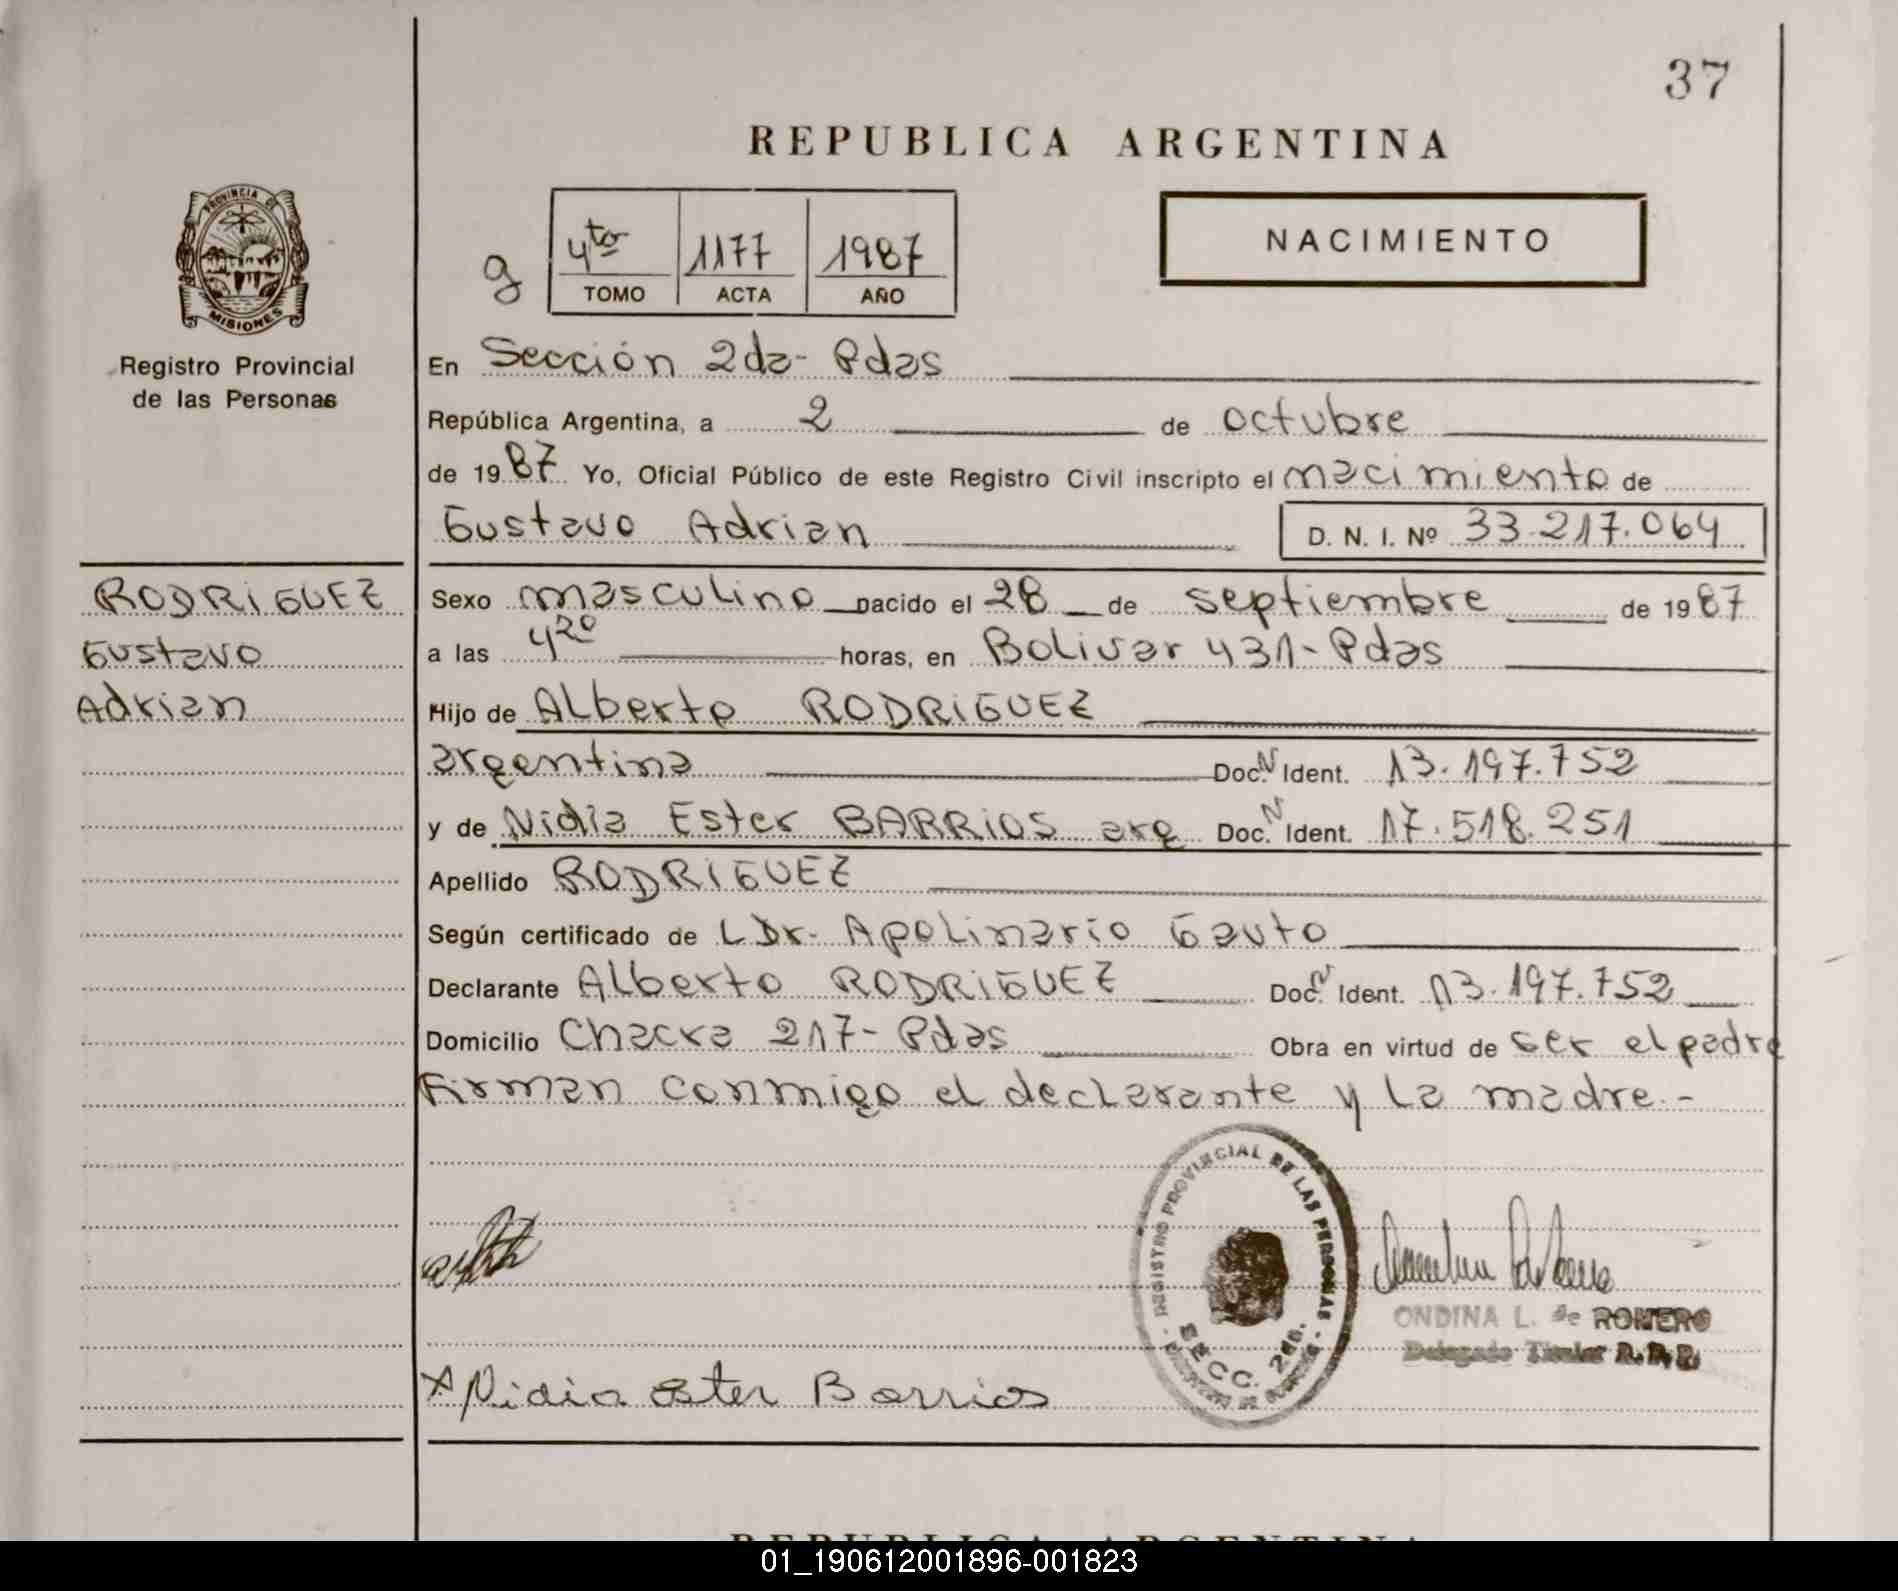 37
REPUBLICA ARGENTINA
PROVINCIA DE
MISIONES
Registro Provincial
de las Personas
g
4to 1177 1987
TOMO ACTA AÑO
NACIMIENTO
En Sección 2da- Pdas
República Argentina, a 2 de octubre
de 1987 Yo, Oficial Público de este Registro Civil inscripto el nacimiento de
Gustavo Adrian D. N. I. Nº 33.217.064
RODRIGUEZ
Gustavo
Adrian
Sexo masculino nacido el 28 de septiembre de 1987
a las 4 20 horas, en Bolivar 431-Pdas
Hijo de Alberto RODRIGUEZ
argentina Doc. N Ident. 13.197.752
y de Nidia Ester BARRIOS arg Doc. N Ident. 17.518.251
Apellido RODRIGUEZ
Según certificado de L Dr. Apolinario Gauto
Declarante Alberto RODRIGUEZ Doc. N Ident. 13.197.752
Domicilio Chacra 217- Pdas Obra en virtud de ser el padre
Firman conmigo el declarante y la madre.-
REGISTRO PROVINCIAL DE LAS PERSONAS
SECC. 2da.
ONDINA L. de ROMERO
Delegado Titular R.P.P.
x Nidia ester Barrios
REPUBLICA ARGENTINA
01_190612001896-001823